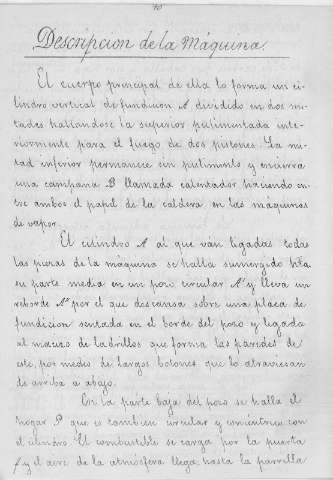 Descripcion de la Máquina.
El cuerpo principal de ella lo forma un ci-
lindro vertical de fundicion A dividido en dos mi-
tades hallandose la superior pulimentada inte-
riormente para el juego de dos pistones. La mi-
tad inferior permanece sin pulimento y encierra
una campana B llamada calentador haciendo en-
tre ambos el papel de la caldera en las máquinas
de vapor.
El cilindro A al que van ligadas todas
las piezas de la máquina se halla sumergido hta
su parte media en un pozo circular A' y lleva un
reborde A'' por el que descansa sobre una placa de
fundicion sentada en el borde del pozo y ligada
al macizo de ladrillos que forma las paredes de
este, por medio de largos botones que lo atraviesan
de arriba a abajo.
En la parte baja del pozo se halla el
hogar P que es tambien circular y concéntrico con
el cilindro. El combustible se carga por la puerta
f y el aire de la atmósfera llega hasta la parrilla